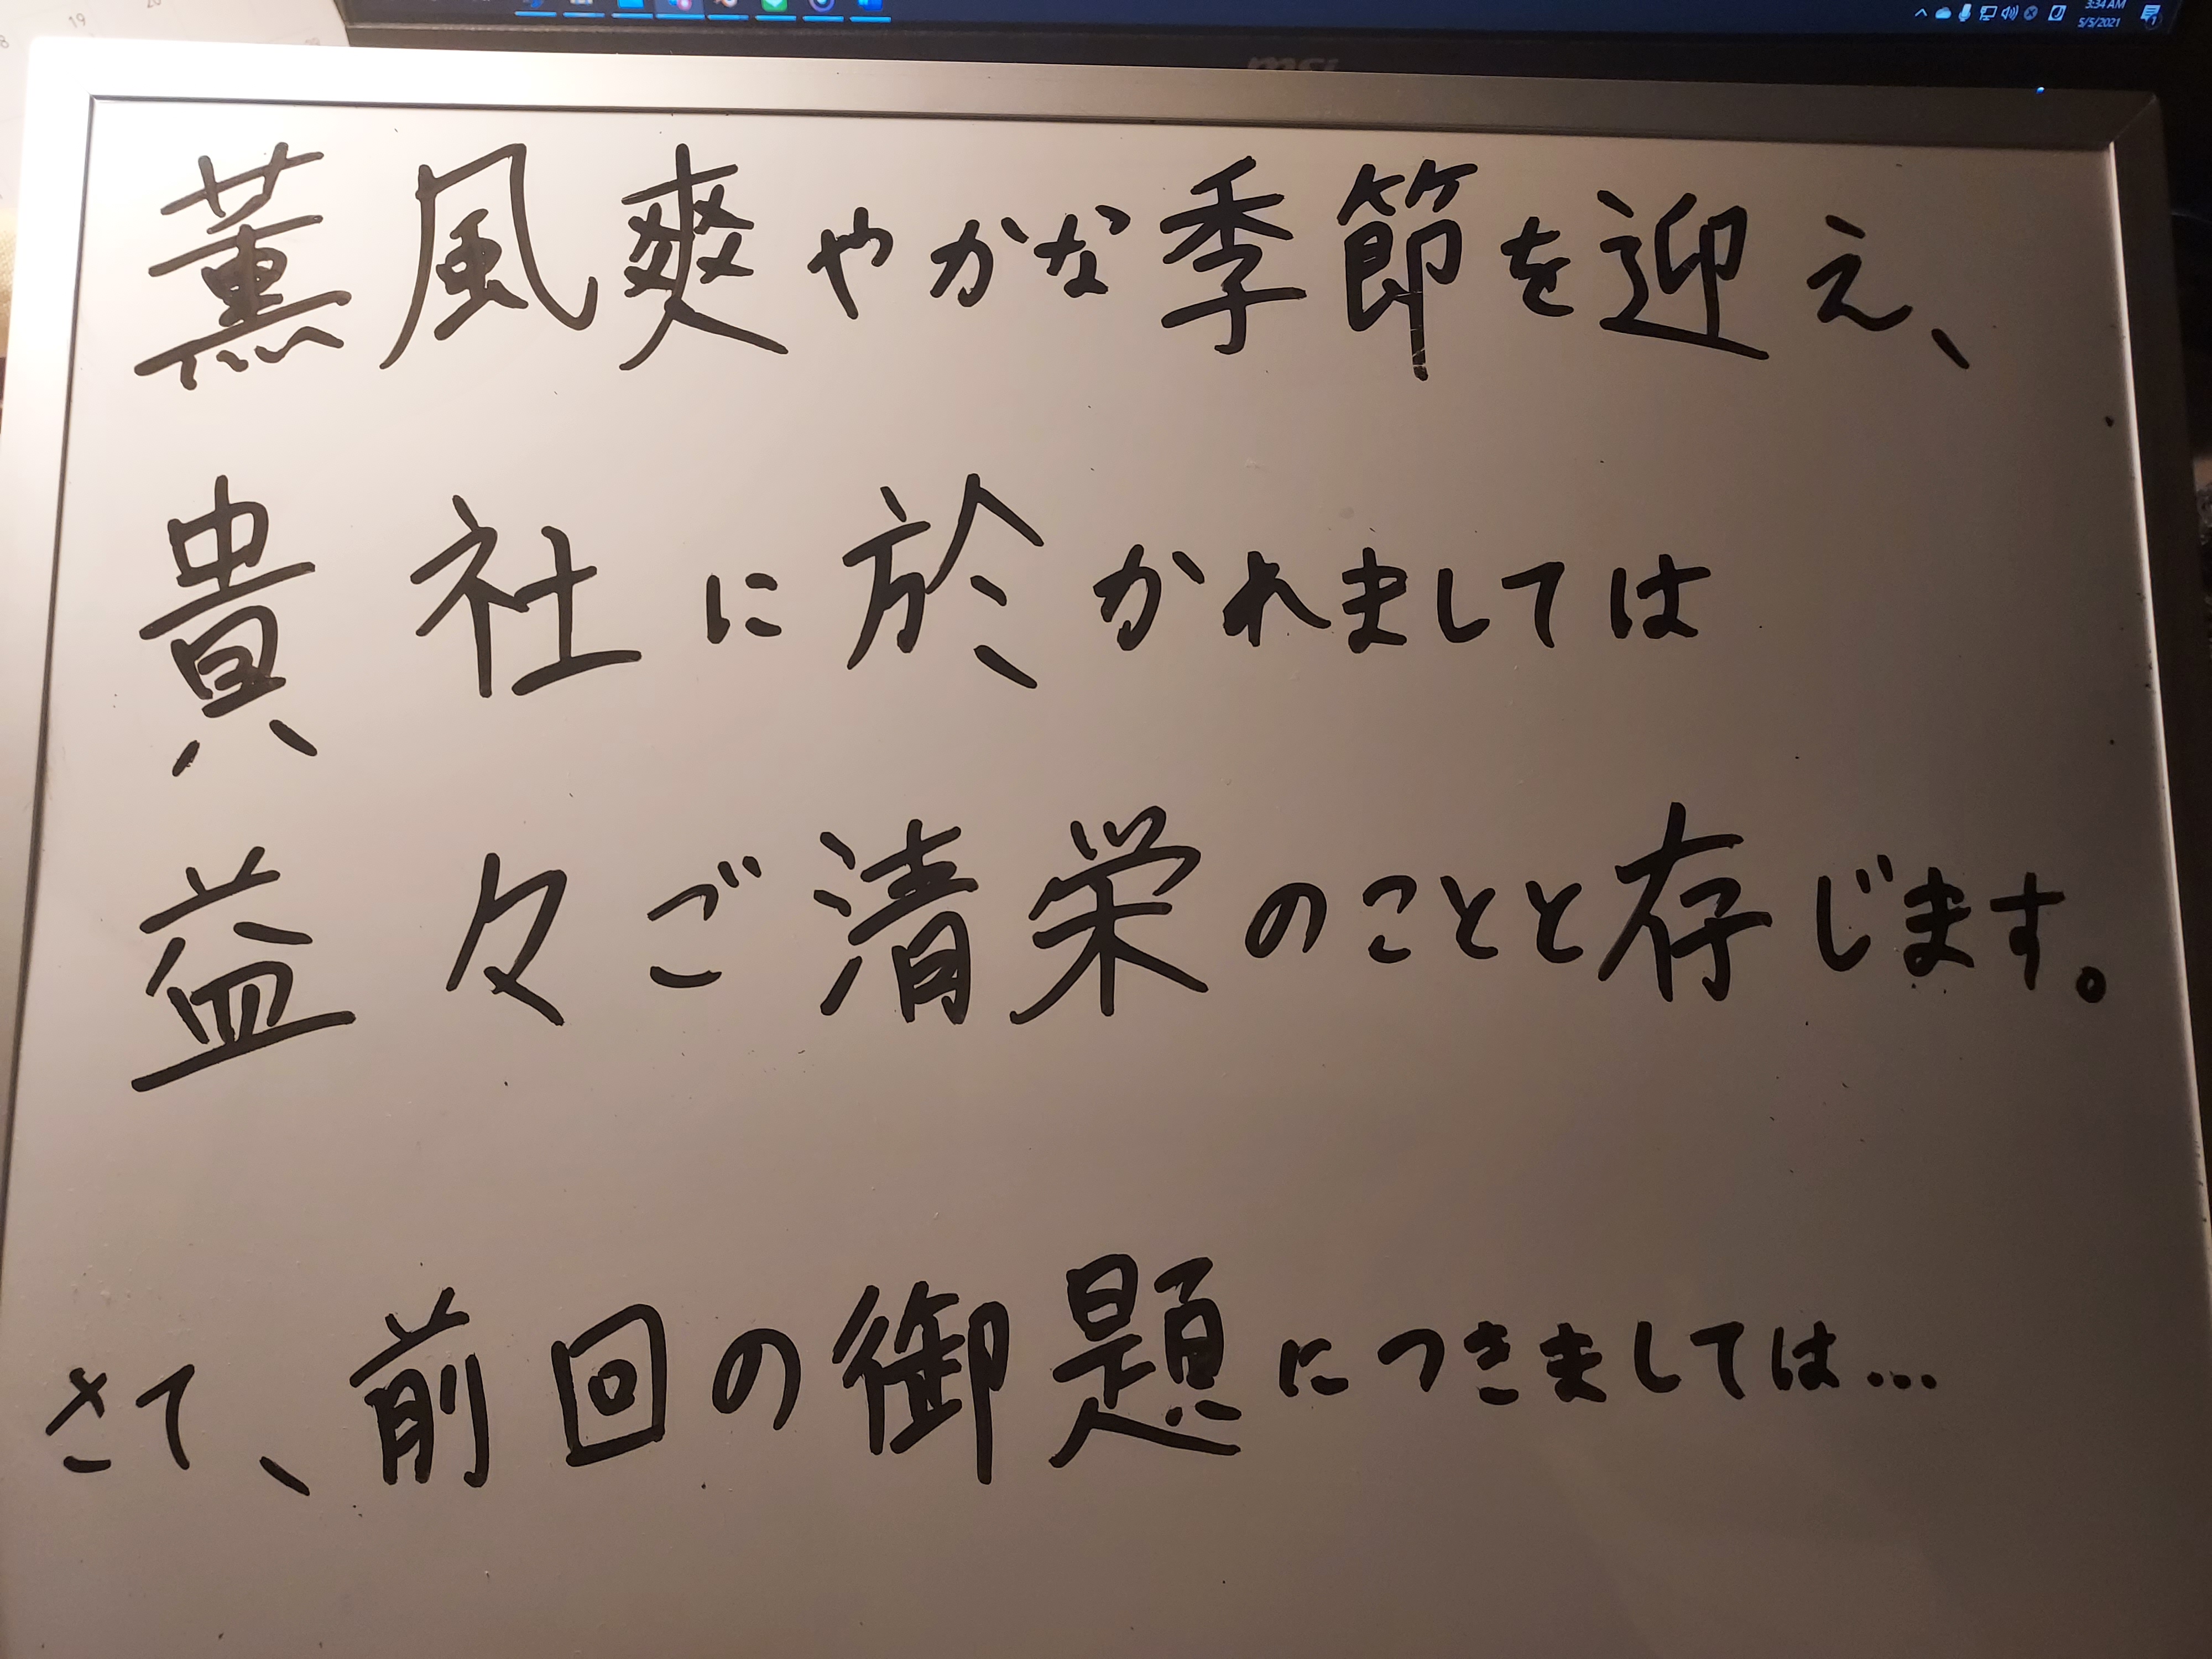 19
20
3:34 AM
5/5/2021
msi
薫風爽やかな季節を迎え、
貴社に於かれましては
益々ご清栄のことと存じます。
さて、前回の御題につきましては…